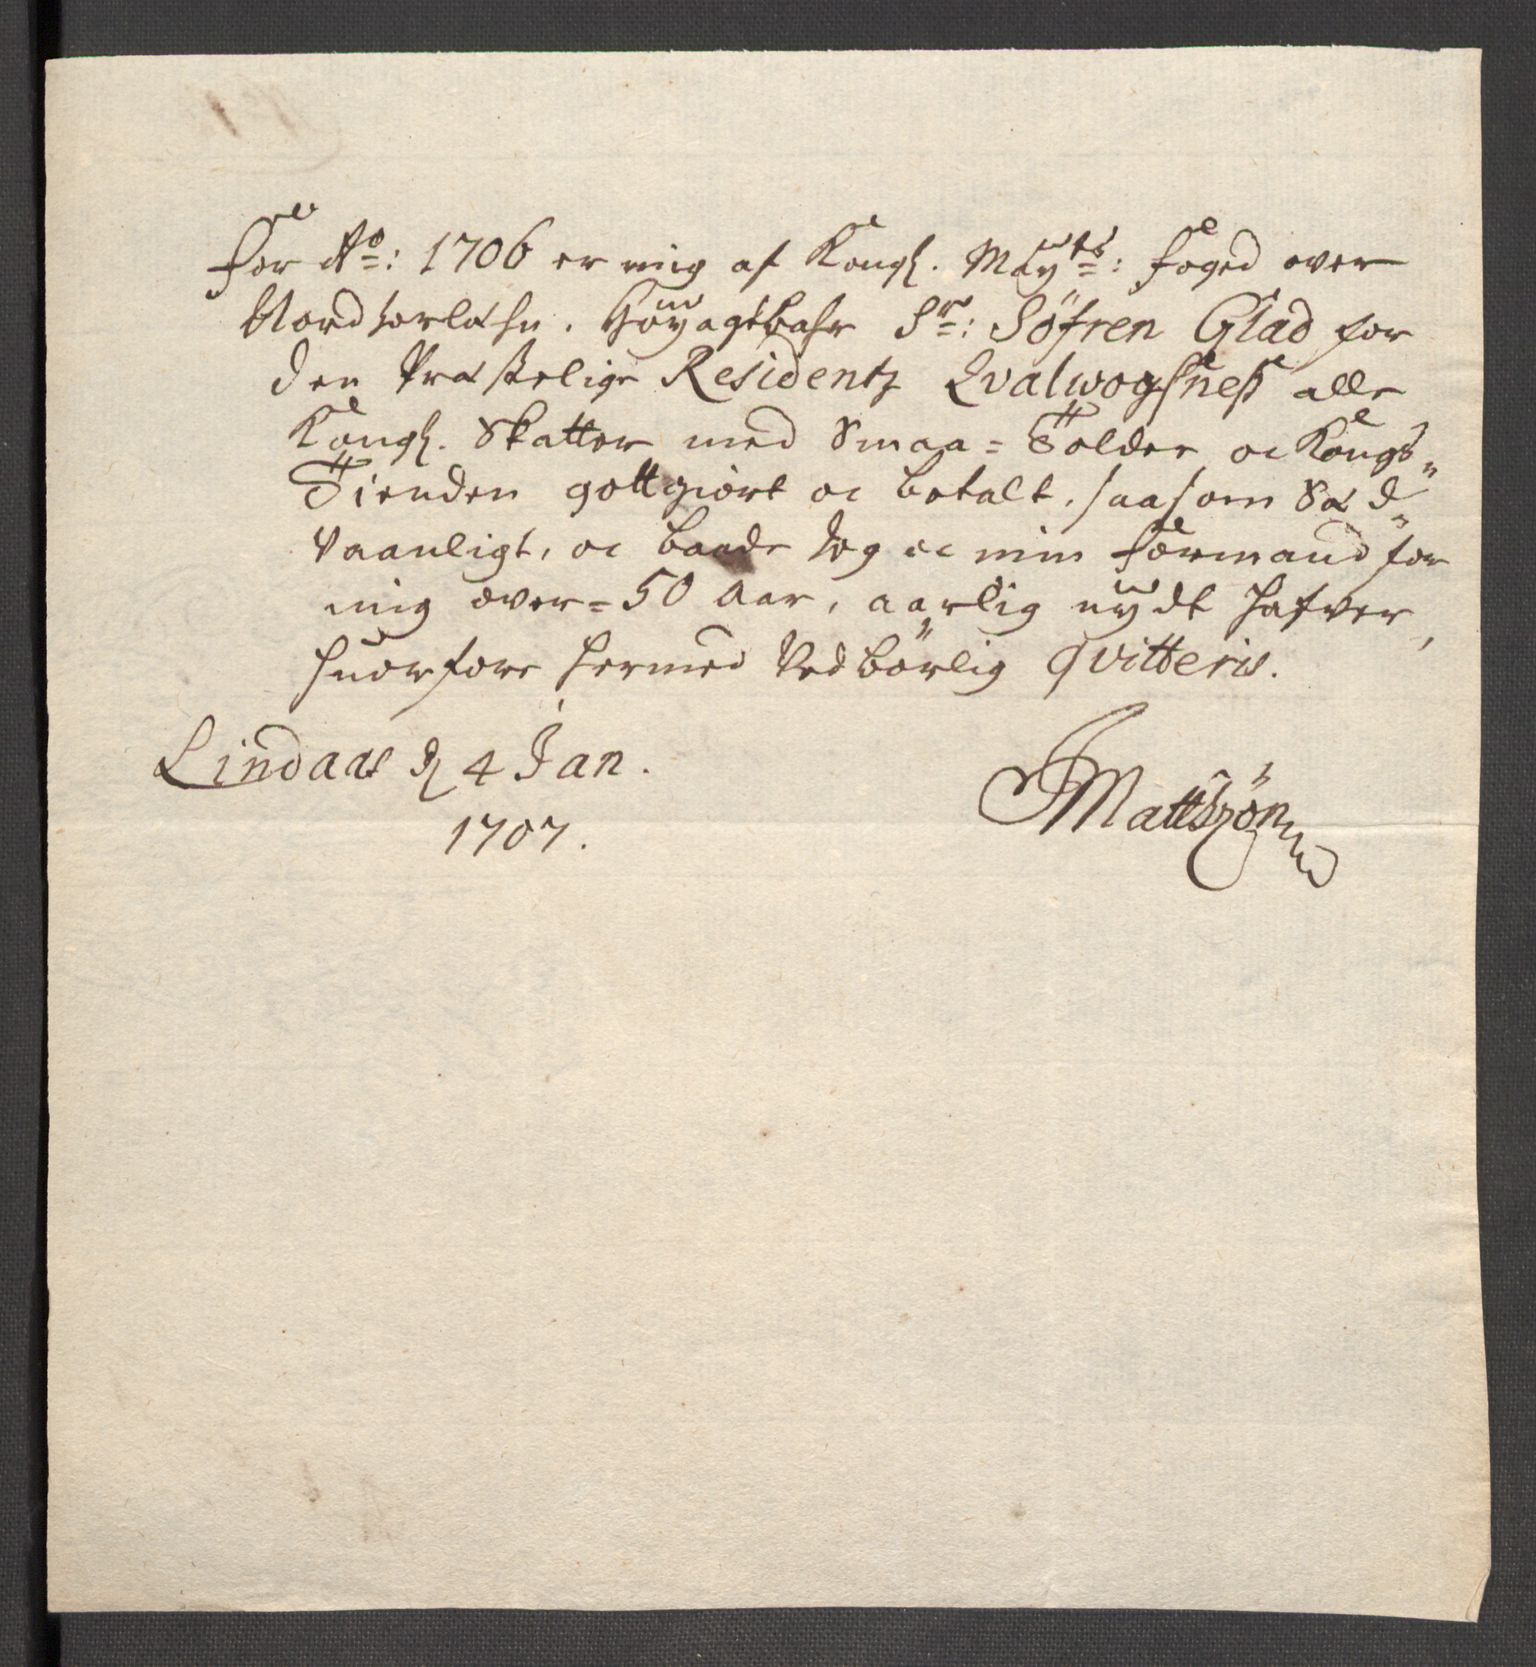 For Ao: 1706 er mig af Kongl. Mayts: foged over
Nordhorlehn. Höyagtbahr Sr: Söfren Glad for
den Præstelige Residentz Qvalwogsness alle
Kongl. Skatter med Smaa= Tolder oc Kongs„
Tienden gottgiört oc betalt, saasom Sæd„
vaanligt, oc baade Jeg oc min formand for
mig over=50 Aar, aarlig nydt hafver,
huorfore hermed Vedbörlig qvitteris.
Lindaas d 4 Jan.
1707.
JMattszön